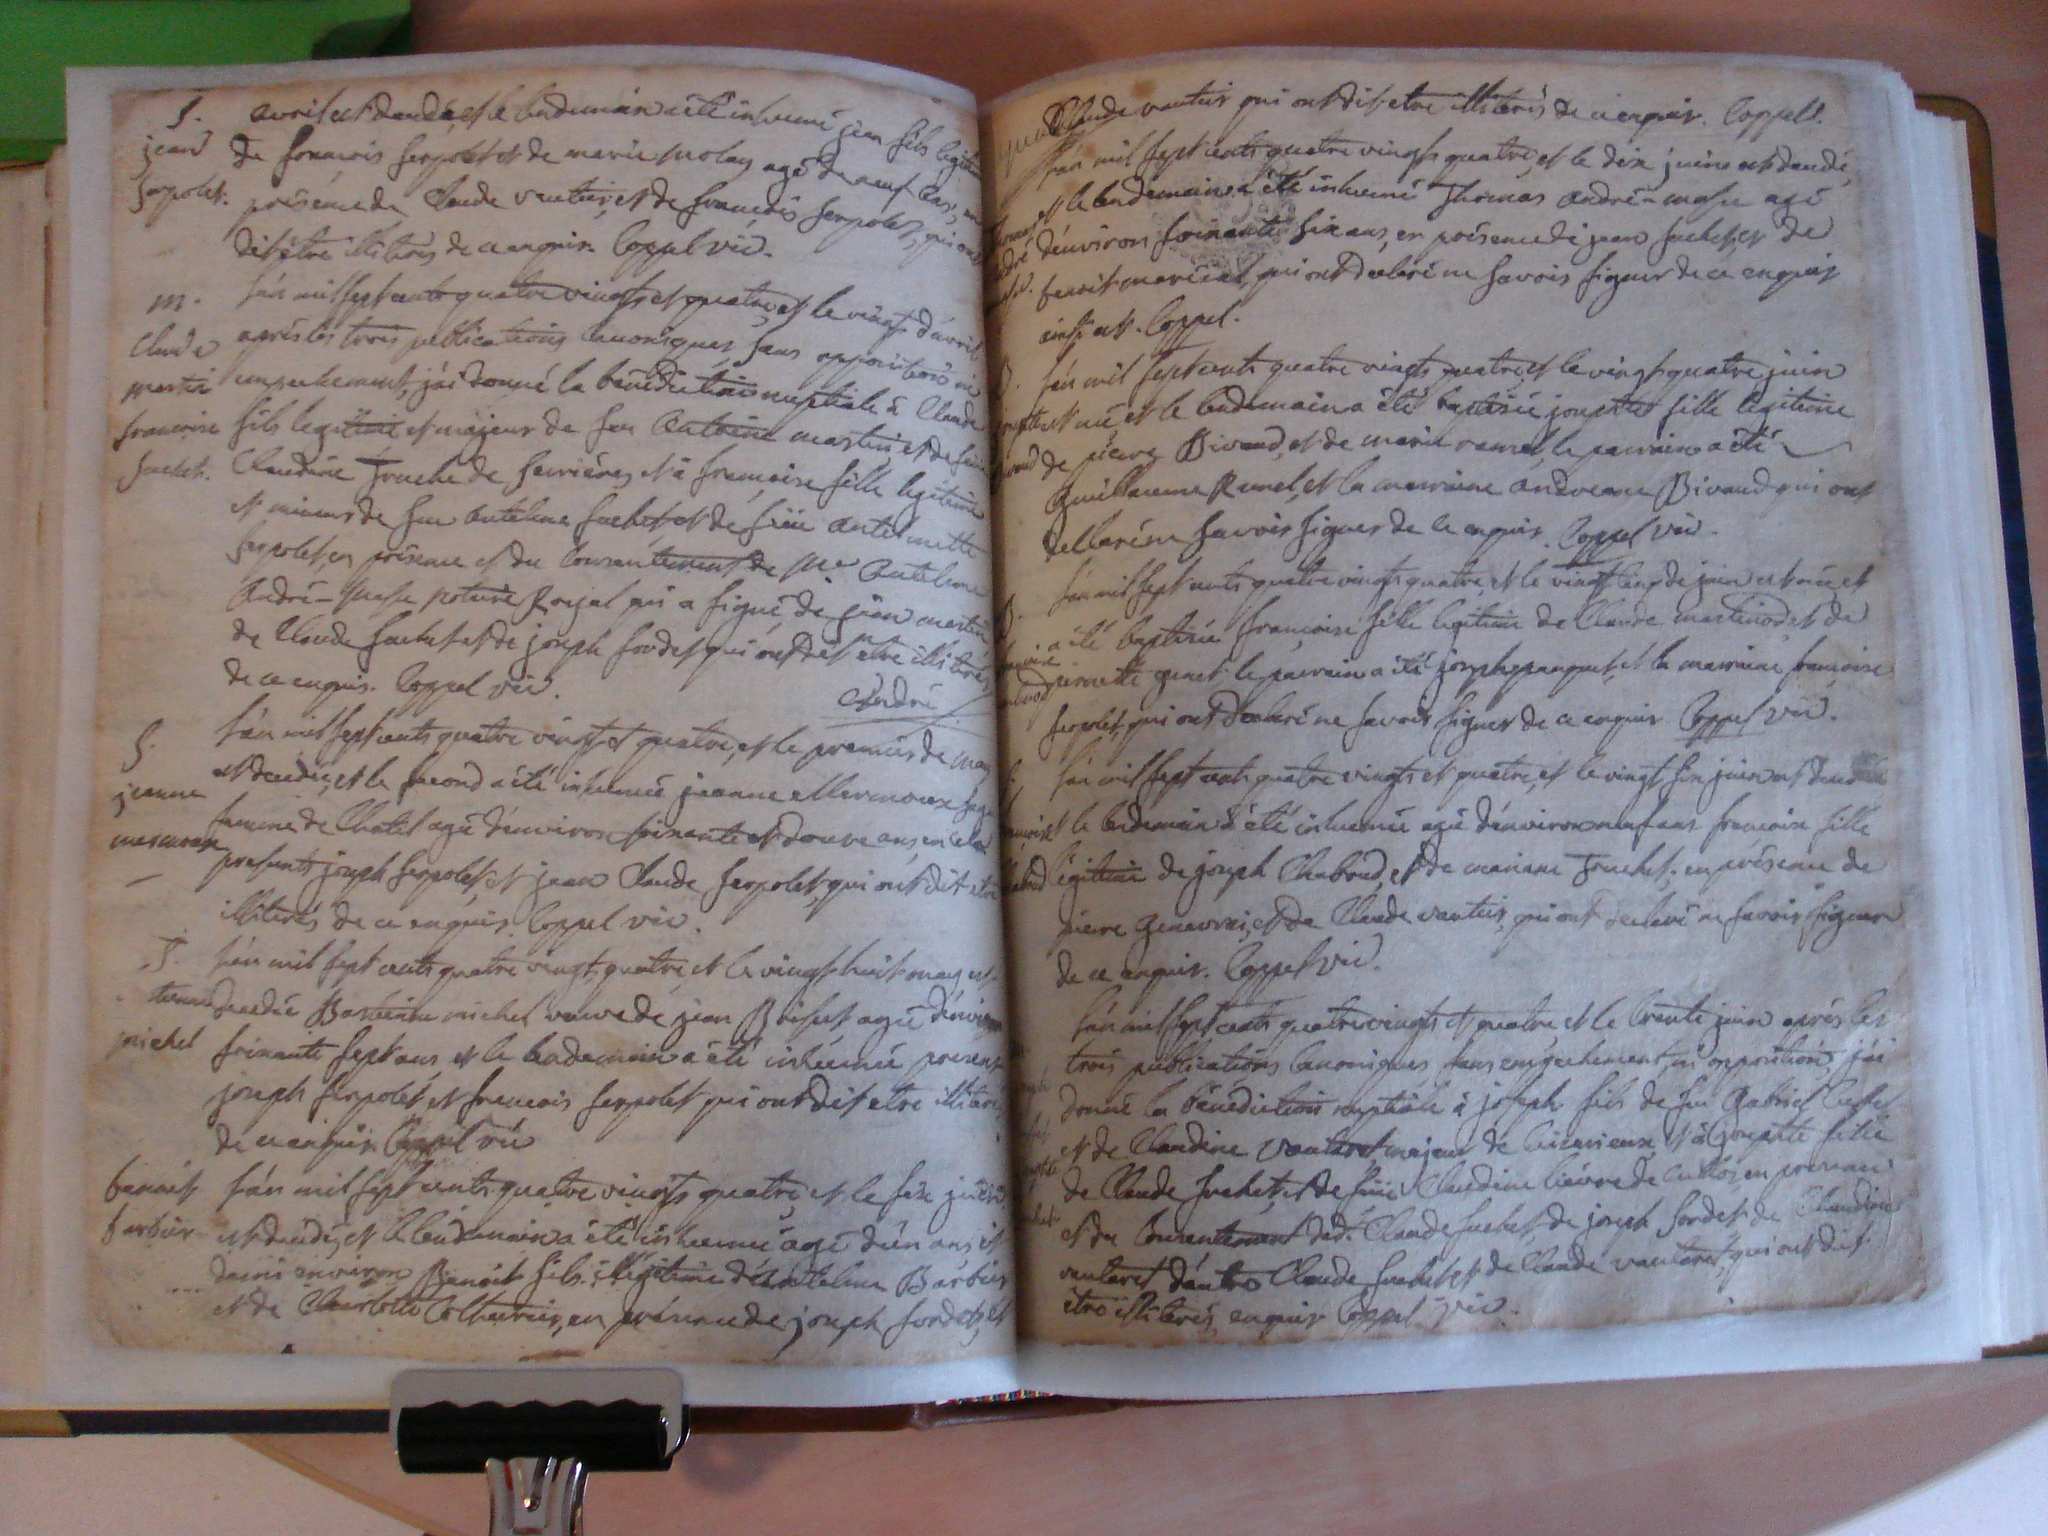 S.
jean
serpolet.
avril est decedé, et le lendemain a été inhumé jean fils legitime
de francois serpolet et de marie molay agé de neuf
présence de Claude vautier, et de francois serpolet, qui ont
dit être illitérés de ce enquis. Coppel vic.
M.
Claude
martin
francoise
suchet.
l'an mil sept cents quatre vingts et quatre, et le vingt d'avril
après les trois publications canoniques sans opposition ni
empechement, j'ai donné la bénédiction nuptiale à Claude
fils legitime et majeur de feu Antoine martin et de feüe
Claudine truche de serrières, et à francoise fille legitime
et mineur de feu antelme suchet, et de feüe antelmette
serpolet, en présence et du consentement de Me Antelme
André-masse notaire Royal qui a signé, de jean martin
de Claude suchet et de joseph sordet qui ont dit être illitérés
de ce enquis. Coppel vic.
André
S.
jeanne
l'an mil sept cents quatre vingt et quatre, et le premier de may
est decedée, et le second a été inhumée jeanne sage
femme de Chatel agée d'environ soixante et douze ans, en
presents joseph serpolet, et jean Claude serpolet, qui ont dit etre
illiterés de ce enquis. Coppel vic.
S.
michel
l'an mil sept cents quatre vingt, quatre, et le vingt huit may est
decedée michel veuve de jean agée d'environ
soixante sept ans, et le lendemain a été inhumée presents
joseph serpolet et francois serpolet qui ont dit etre illiterés
de ce enquis Coppel vic
benoit
barbier
l'an mil sept cents quatre vingts quatre, et le six juin
est decedé, et le lendemain a été inhumé agé d'un ans et
demi environ Benoit fils légitime d'Antelme Barbier
et de Charlotte en présence de joseph sordet, et
Claude vautier qui ont dit etre illiterés de ce enquis. Coppel.
l'an mil sept cents quatre vingts quatre, et le dix juin est decedé,
et le lendemain a été inhumé Thomas André-masse agé
d'environ soixante six ans, en présence de jean suchet, et de
benoit marécal, qui ont declaré ne savoir signer de ce enquis
Coppel.
l'an mil sept cents quatre vingts quatre, et le vingt quatre juin
est née, et le lendemain a été baptisée josephte fille legitime
de pierre Bivaud, et de marie ramel, le parrain a été
Guillaume Ramel, et la marraine andreanne Bivaud qui ont
declaré ne savoir signer de ce enquis. Coppel vic.
l'an mil sept cents quatre vingts quatre, et le vingt cinq de juin est née, et
a été baptisée françoise fille legitime de Claude martinod, et de
pernette le parrain a été joseph et la marraine françoise
serpolet, qui ont declaré ne savoir signer de ce enquis Coppel vic.
l'an mil sept cents quatre vingts et quatre, et le vingt six juin est decedée
et le lendemain a été inhumée agée d'environ neuf ans francoise fille
legitime de joseph Chaboud, et de mariane truchet, en présence de
pierre et de Claude vautier, qui ont declaré ne savoir signer
de ce enquis. Coppel vic.
l'an mil sept cents quatre vingts et quatre, et le trente juin après les
trois publications canoniques sans empechement, ni opposition, j'ai
donné la bénediction nuptiale à joseph fils de feu Gabriel
et de Claudine vautaret majeur de et à josephte fille
de Claude suchet, et de feüe Claudine lièvre de culloz, en presence
et du consentement dud. Claude suchet, de joseph sordet de Claudine
vautaret d'autre Claude suchet et de Claude vautaret, qui ont dit
être illiterés, enquis Coppel vic.